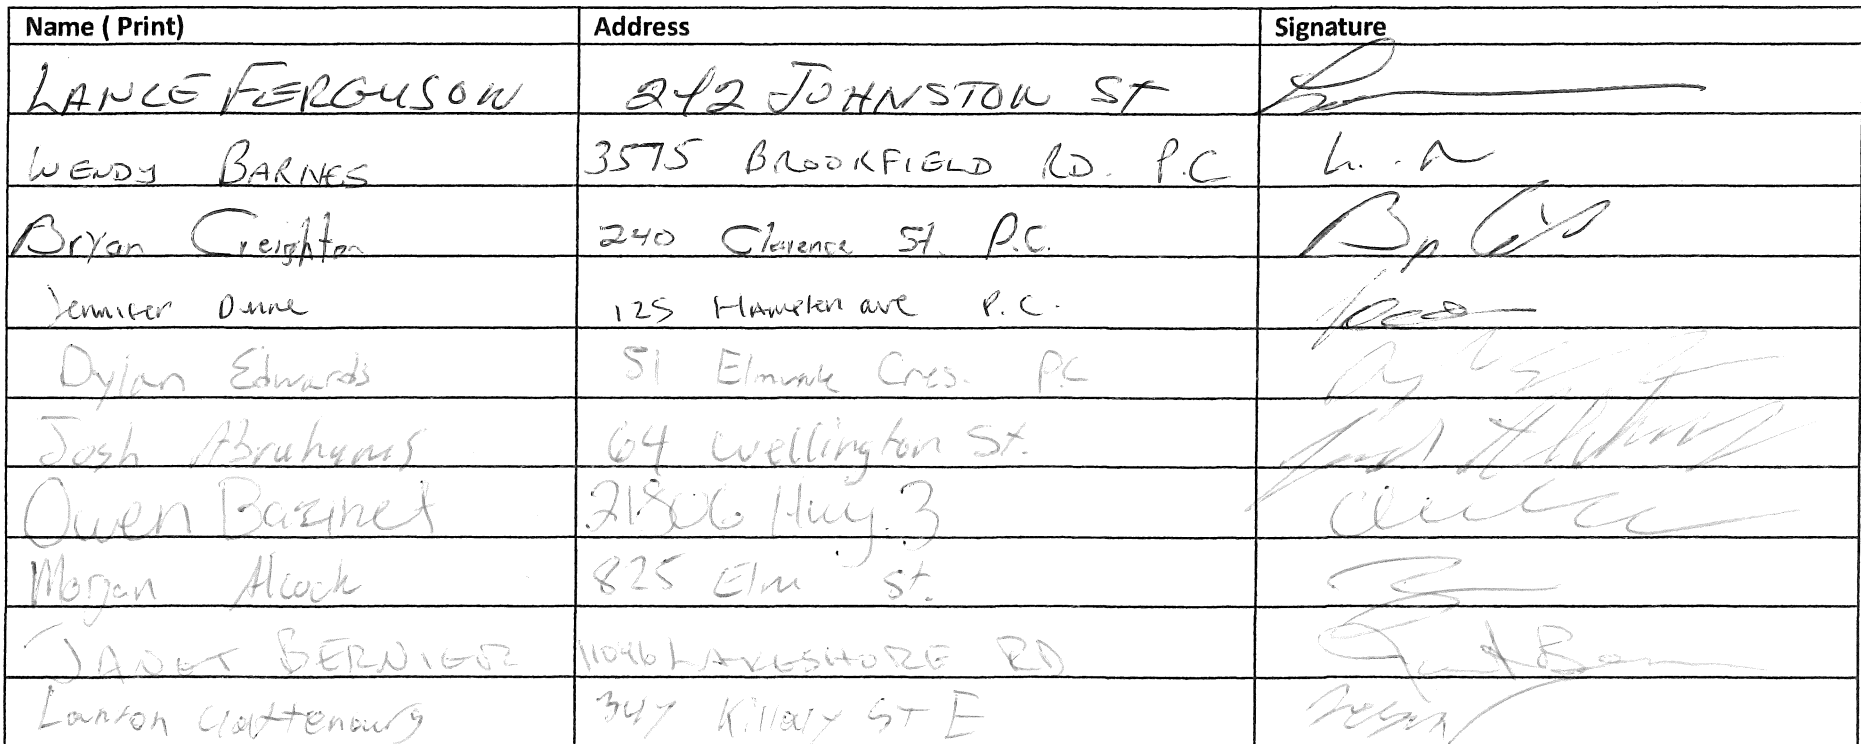 Name ( Print) Address Signature
LANCE FERGUSON 242 JOHNSTON St
WENDY BARNES 3575 BROOKFIELD RD. P.C
Bryan Creighton 240 Clarence St. P.C.
Jennifer Dunne 125 Hampton ave P.C.
Dylan Edwards 51 Cres. P.C
Josh Abrahams 64 Wellington St.
Owen Bazinet 21806 Hwy. 3
Morgan Alcock 825 Elm St.
JANET BERNIER 11046 LAKESHORE RD
347 Killaly ST E